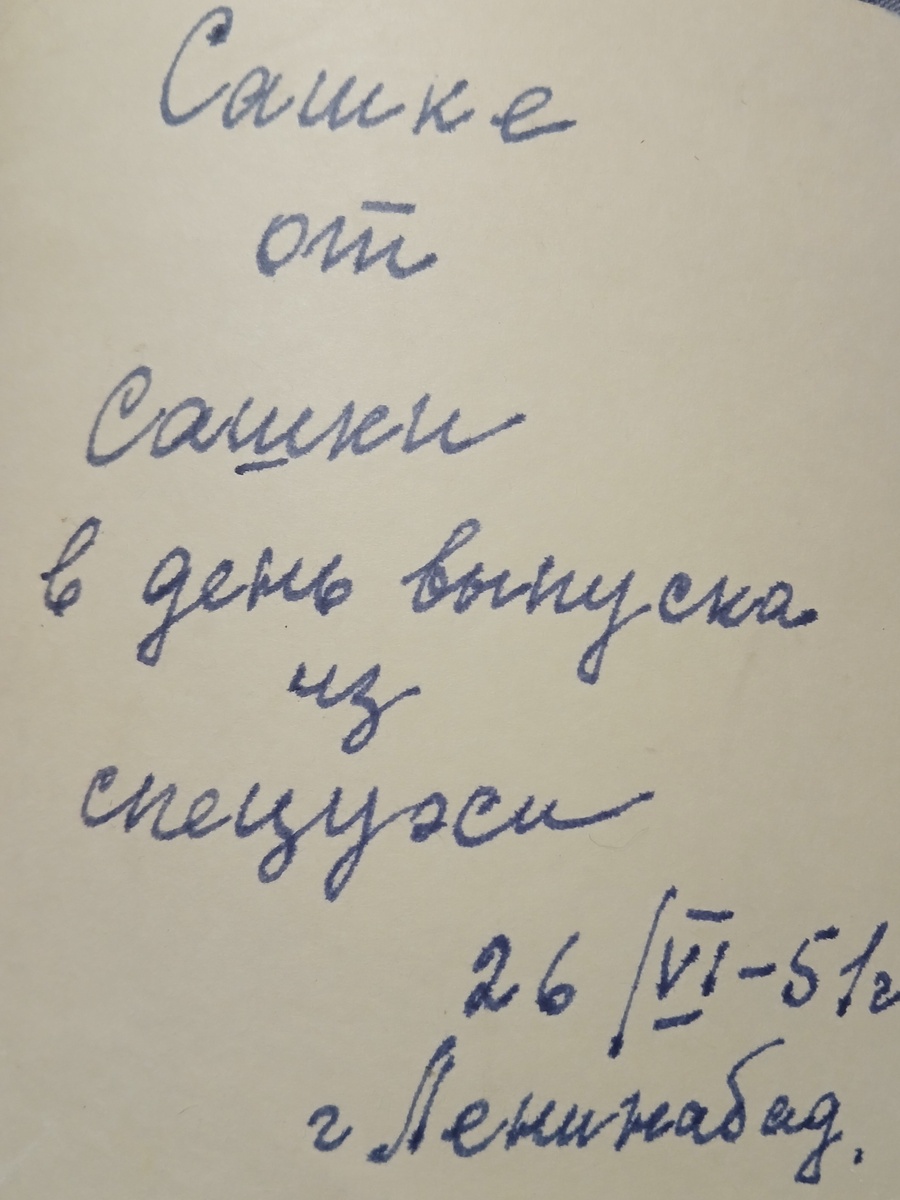 Сашке
от
Сашки
в день выпуска
из
спецухи
26/VI-51г
г Ленинабад.